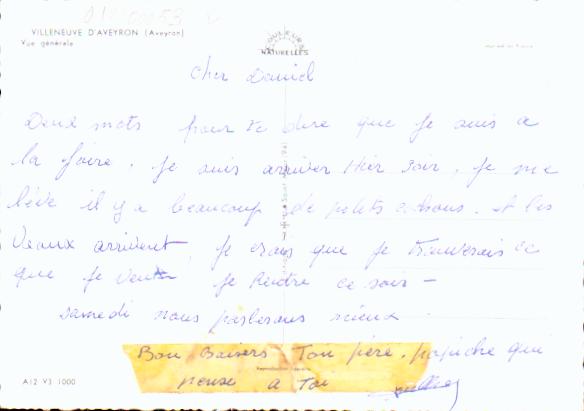 VILLENEUVE D'AVEYRON (Aveyron)
Vue générale
COULEURS
NATURELLES
Cher Daniel
Deux mots pour te dire que je suis a
la foire. je suis arriver Hier soir, je me
lève il y a beaucoup de petits cochons. et les
Veaux arrivent, je crois que je trouverais ce
que je veux je rentre ce soir -
samedi nous parlerons mieux
Bon Baisers Ton père. qui
pense a Toi
Reproduction interdite
A12 V3 1000